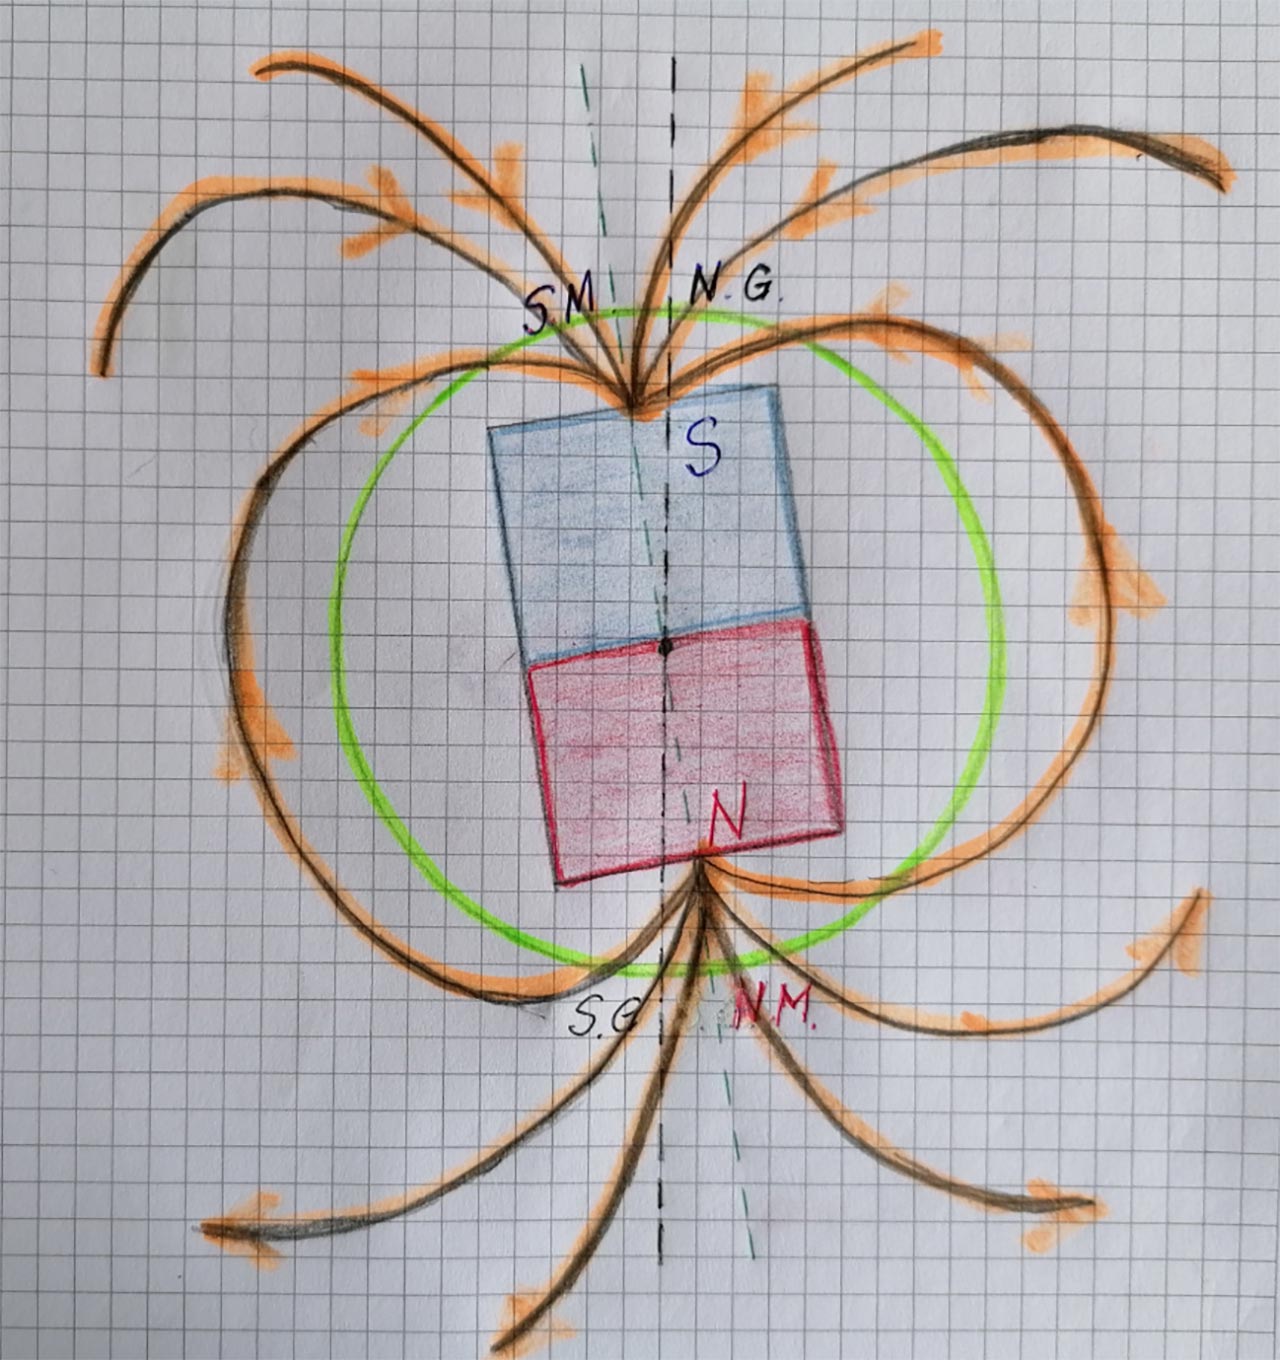 S.M
N.G.
S
N
S.G
N.M.